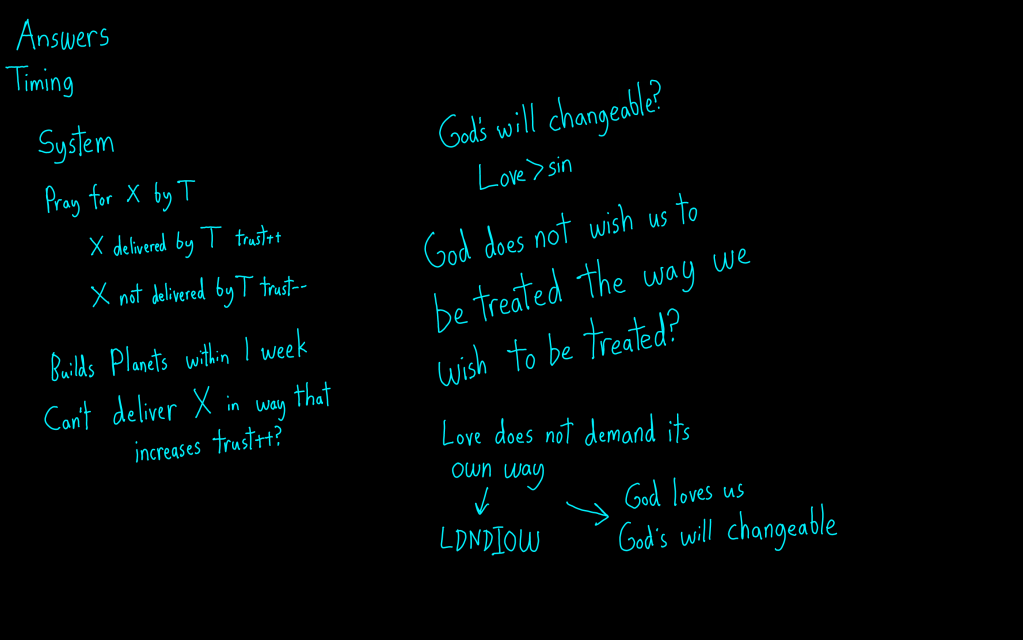 Answers
Timing
System
Pray for X by T
X delivered by T trust++
X not delivered by T trust--
Builds Planets within 1 week
Can't deliver X in way that
increases trust++?
God's will changeable?
Love > sin
God does not wish us to
be treated the way we
wish to be treated?
Love does not demand its
own way
LDNDIOW
God loves us
God's will changeable